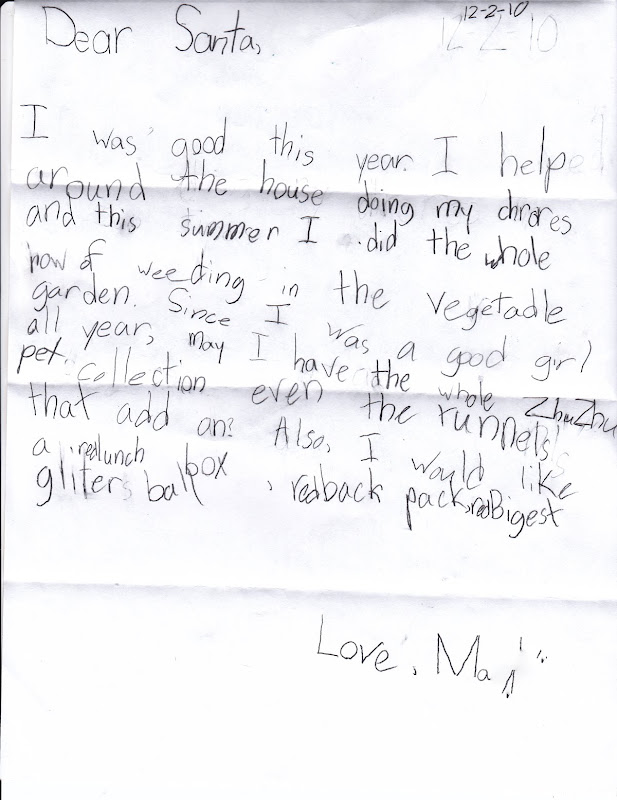 12-2-10
12-2-10
Dear Santa,
I was good this year. I help
around the house doing my chrores
and this summer I did the whole
row of weeding in the vegetadle
garden. Since I was a good girl
all year, may I have the whole ZhuZhu
pet collection even the runnels
that add on? Also, I would like
a redlunch box, redback pack, redBigest
gliters ball
Love, Ma